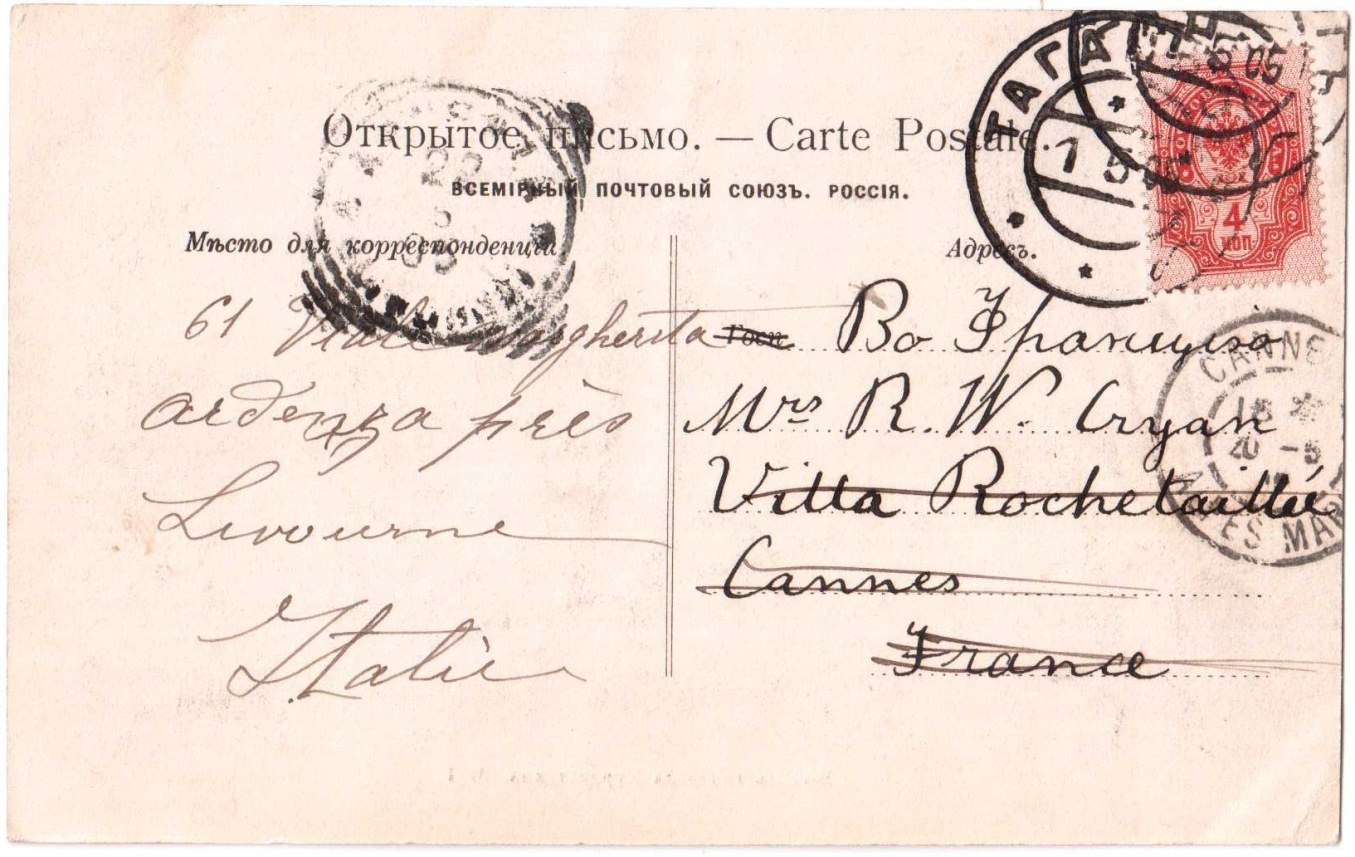 Открытое письмо. — Carte Postale.
ВСЕМІРНЫЙ ПОЧТОВЫЙ СОЮЗЪ. РОССІЯ.
Мѣсто для корреспонденціи
Адресъ.
ТАГА
1 5
4
КОП
61 Viale Margherita
Ardenza près
Livourne
Italie
Во Францию
Mrs R. W. Cryan
Villa Rochetaillée
Cannes
France
CANNES
20 -5
ALPES MAR